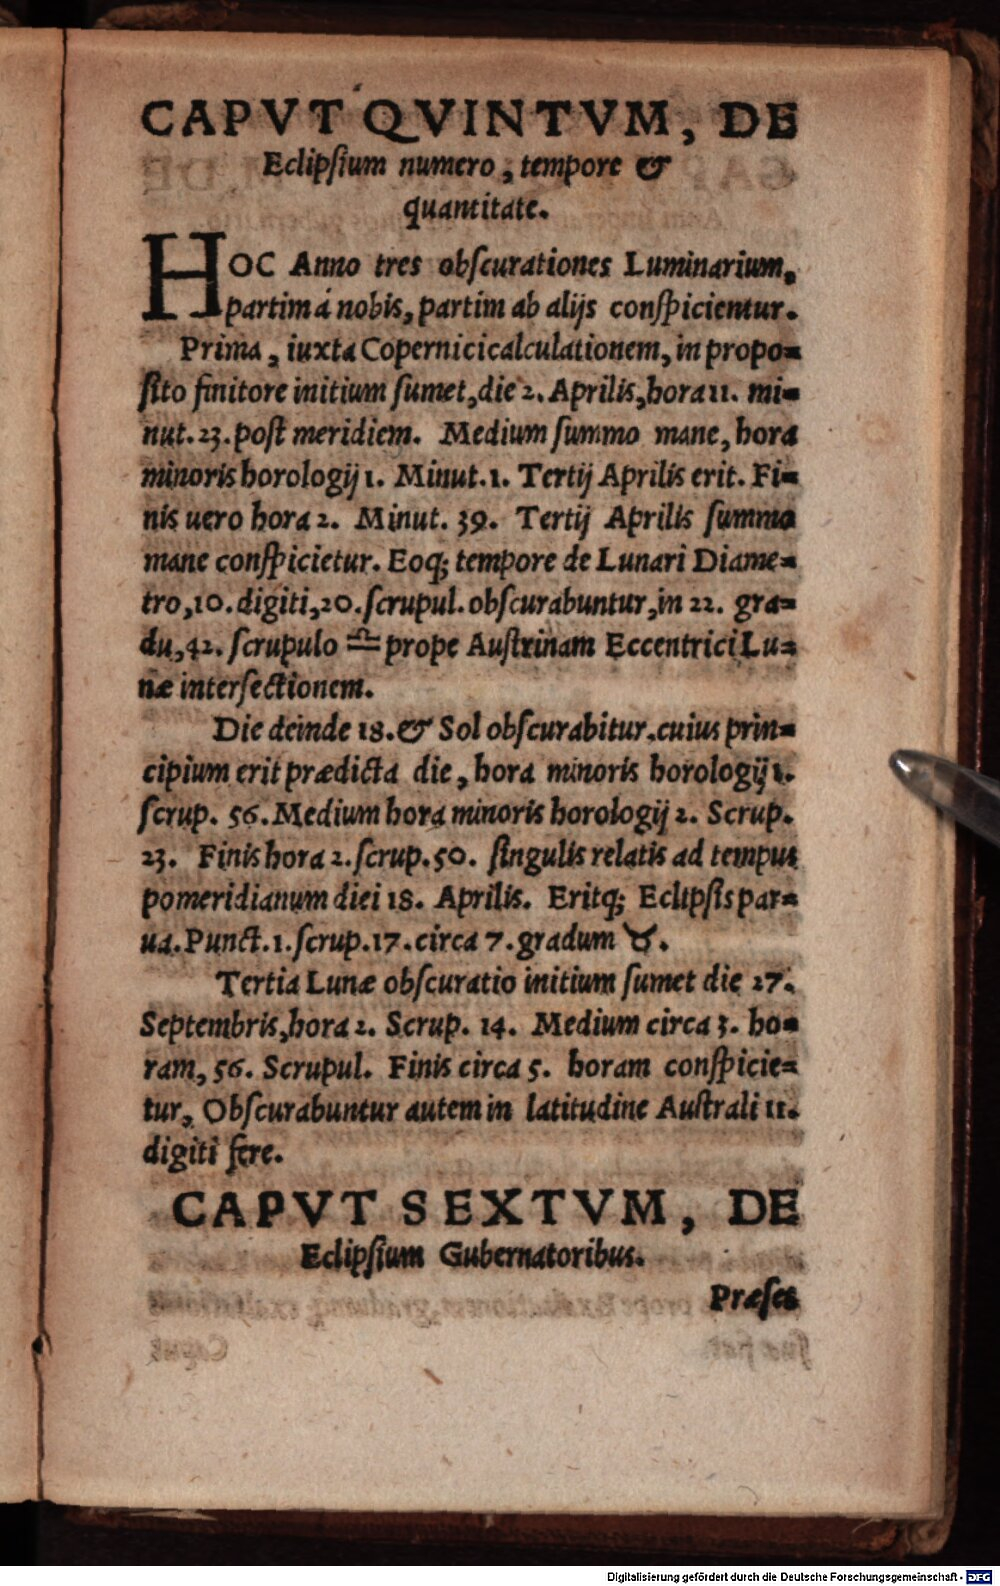 CAPVT QVINTVM, DE
Eclipſium numero, tempore &
quantitate.
HOC Anno tres obſcurationes Luminarium,
partim á nobis, partim ab alijs conſpicientur.
Prima, iuxta Copernici calculationem, in propo=
ſito finitore initium ſumet, die 2. Aprilis, hora 11. mi=
nut. 23. poſt meridiem. Medium ſummo mane, hora
minoris horologij 1. Minut. 1. Tertij Aprilis erit. Fi=
nis uero hora 2. Minut. 39. Tertij Aprilis ſummo
mane conſpicietur. Eoq; tempore de Lunari Diame=
tro, 10. digiti, 20. ſcrupul. obſcurabuntur, in 22. gra=
du, 42. ſcrupulo ♎ prope Auſtrinam Eccentrici Lu=
næ interſectionem.
Die deinde 18. & Sol obſcurabitur. cuius prin=
cipium erit prædicta die, hora minoris horologij 1.
ſcrup. 56. Medium hora minoris horologij 2. Scrup.
23. Finis hora 2. ſcrup. 50. ſingulis relatis ad tempus
pomeridianum diei 18. Aprilis. Eritq; Eclipſis par=
ua. Punct. 1. ſcrup. 17. circa 7. gradum ♉.
Tertia Lunæ obſcuratio initium ſumet die 27.
Septembris, hora 2. Scrup. 14. Medium circa 3. ho=
ram, 56. Scrupul. Finis circa 5. horam conſpicie=
tur, Obſcurabuntur autem in latitudine Auſtrali 11.
digiti fere.
CAPVT SEXTVM, DE
Eclipſium Gubernatoribus.
Præſes
Digitalisierung gefördert durch die Deutsche Forschungsgemeinschaft - DFG